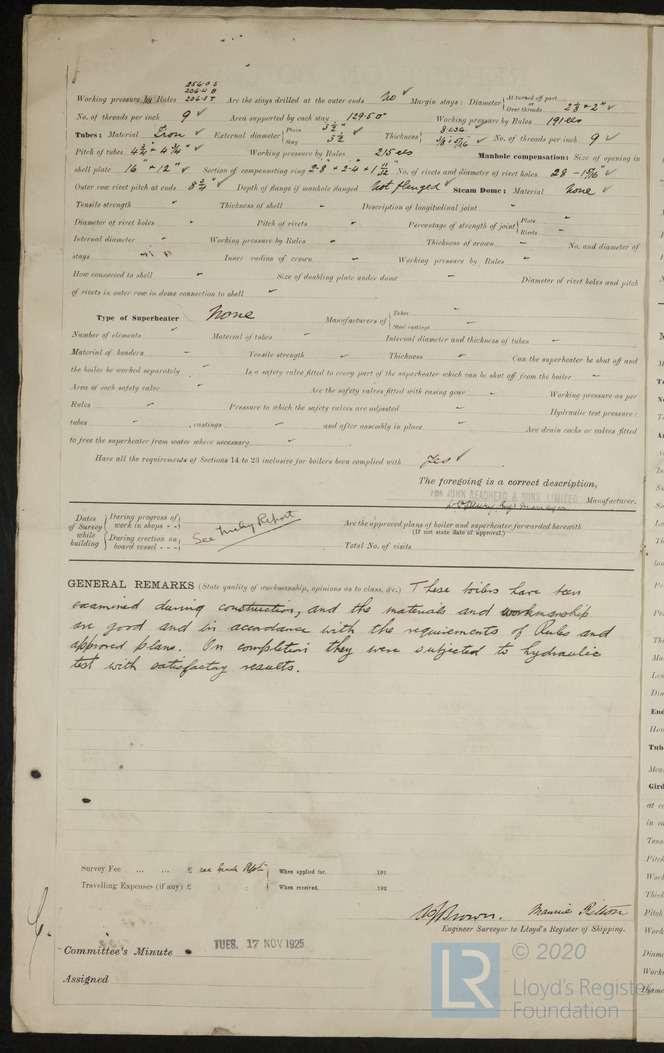 256·0 S
206·11 B
Working pressure by Rules 206·1 T Are the stays drilled at the outer ends No Margin stays: Diameter { At turned off part, or Over threads 2⅛ + 2"
No. of threads per inch 9 Area supported by each stay 129·5 □" Working pressure by Rules 191 lbs
Tubes: Material Iron External diameter { Plain 3½" Stay 3½ Thickness { 8 L.S.G. No. of threads per inch 9
Pitch of tubes Working pressure by Rules 215 lbs Manhole compensation: Size of opening in
shell plate 16" + 12" Section of compensating ring No. of rivets and diameter of rivet holes 28 -
Outer row rivet pitch at ends 8¾" Depth of flange if manhole flanged Not flanged Steam Dome: Material None
Tensile strength " Thickness of shell " Description of longitudinal joint "
Diameter of rivet holes " Pitch of rivets " Percentage of strength of joint { Plate " Rivets "
Internal diameter " Working pressure by Rules " Thickness of crown " No. and diameter of
stays Inner radius of crown " Working pressure by Rules "
How connected to shell " Size of doubling plate under dome " Diameter of rivet holes and pitch
of rivets in outer row in dome connection to shell "
Type of Superheater None Manufacturers of { Tubes " Steel castings "
Number of elements " Material of tubes " Internal diameter and thickness of tubes "
Material of headers " Tensile strength " Thickness " Can the superheater be shut off and
the boiler be worked separately " Is a safety valve fitted to every part of the superheater which can be shut off from the boiler "
Area of each safety valve " Are the safety valves fitted with easing gear " Working pressure as per
Rules " Pressure to which the safety valves are adjusted " Hydraulic test pressure:
tubes " , castings " and after assembly in place " Are drain cocks or valves fitted
to free the superheater from water where necessary "
Have all the requirements of Sections 14 to 23 inclusive for boilers been complied with Yes
The foregoing is a correct description,
FOR JOHN READHEAD & SONS, LIMITED Manufacturer.
Manager
Dates of Survey while building { During progress of work in shops - - } { During erection on board vessel - - - } See Machy Report
Are the approved plans of boiler and superheater forwarded herewith
(If not state date of approval.)
Total No. of visits
GENERAL REMARKS (State quality of workmanship, opinions as to class, &c.) These boilers have been
examined during construction, and the materials and workmanship
are good and in accordance with the requirements of Rules and
approved plans. On completion they were subjected to hydraulic
test with satisfactory results.
Survey Fee ... ... £ see Mach Rpt. { When applied for, 192
Travelling Expenses (if any) £ { When received, 192
Engineer Surveyor to Lloyd's Register of Shipping.
Committee's Minute TUES. 17 NOV 1925
Assigned
© 2020
LR Lloyd's Register
Foundation